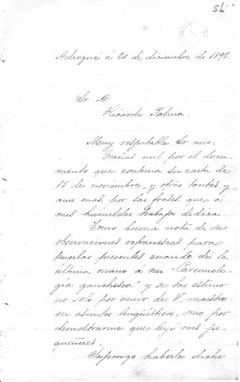 54
Adrogué á 20 de diciembre de 1898.
Sr D
Ricardo Palma.
Muy respetable Sr mio:
Gracias mil por el docu-
mento que contiene su carta de
15 de noviembre, y otras tantas y
aun mas por las frases que a
mis humildes trabajos dedica.
Tomo buena nota de sus
observaciones
tenerlas presentes cuando dé la
última mano a mi "Paremiolo-
gia y se las estimo
no solo por venir de V. maestro
en asuntos lingüísticos, sino por
demostrarme que leyó mis pe-
queñeces.
Supongo haberle dicho